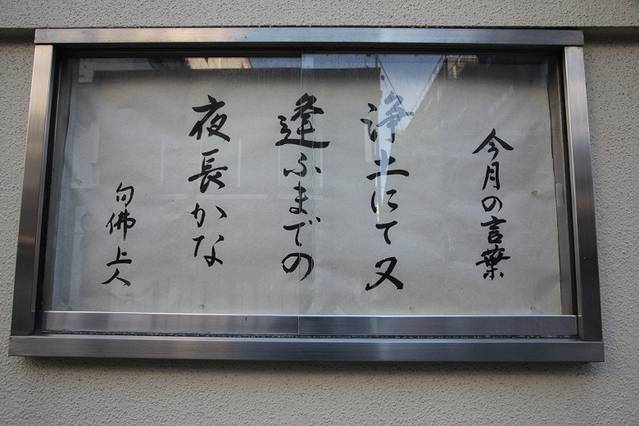 今月の言葉
浄土にて又
逢ふまでの
夜長かな
句佛上人